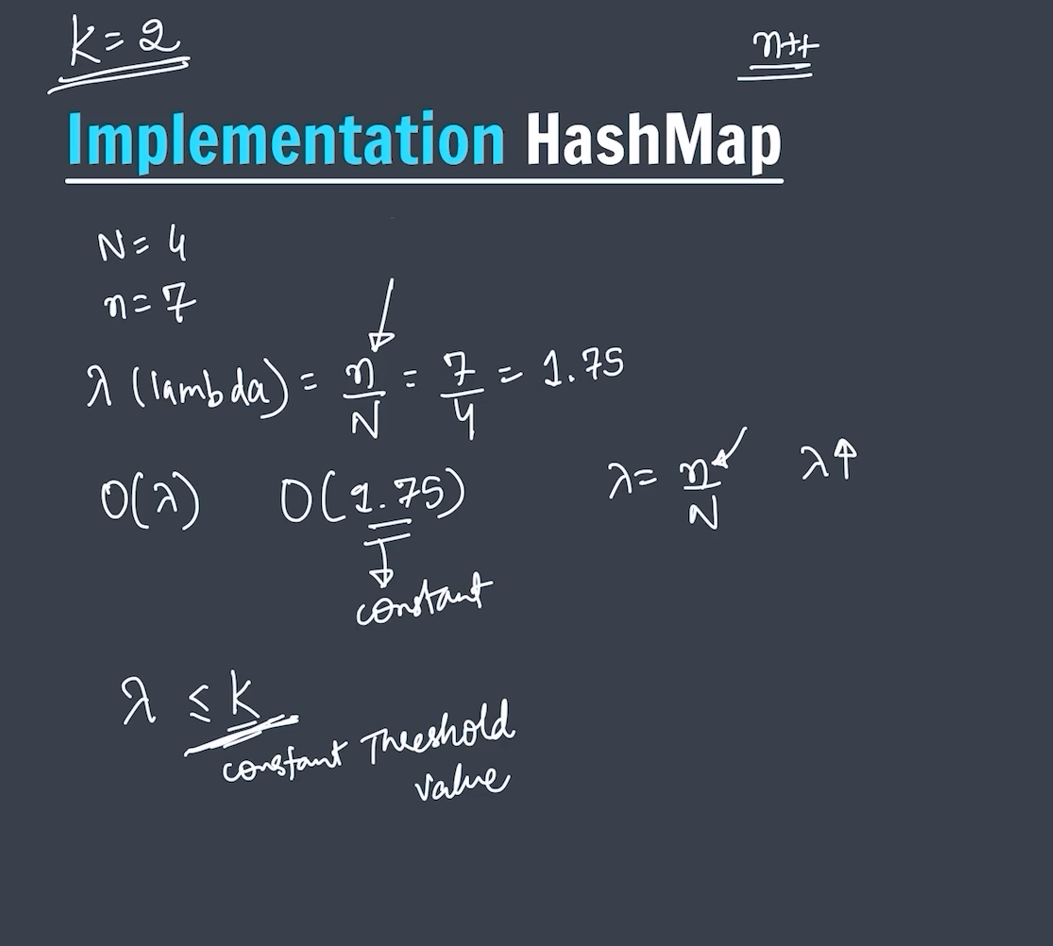 k=2
n++
Implementation HashMap
N=4
n=7
λ (lambda) = n/N = 7/4 = 1.75
O(λ) O(1.75) λ= n/N λ↑
constant
λ ≤ k
constant Threshold
value